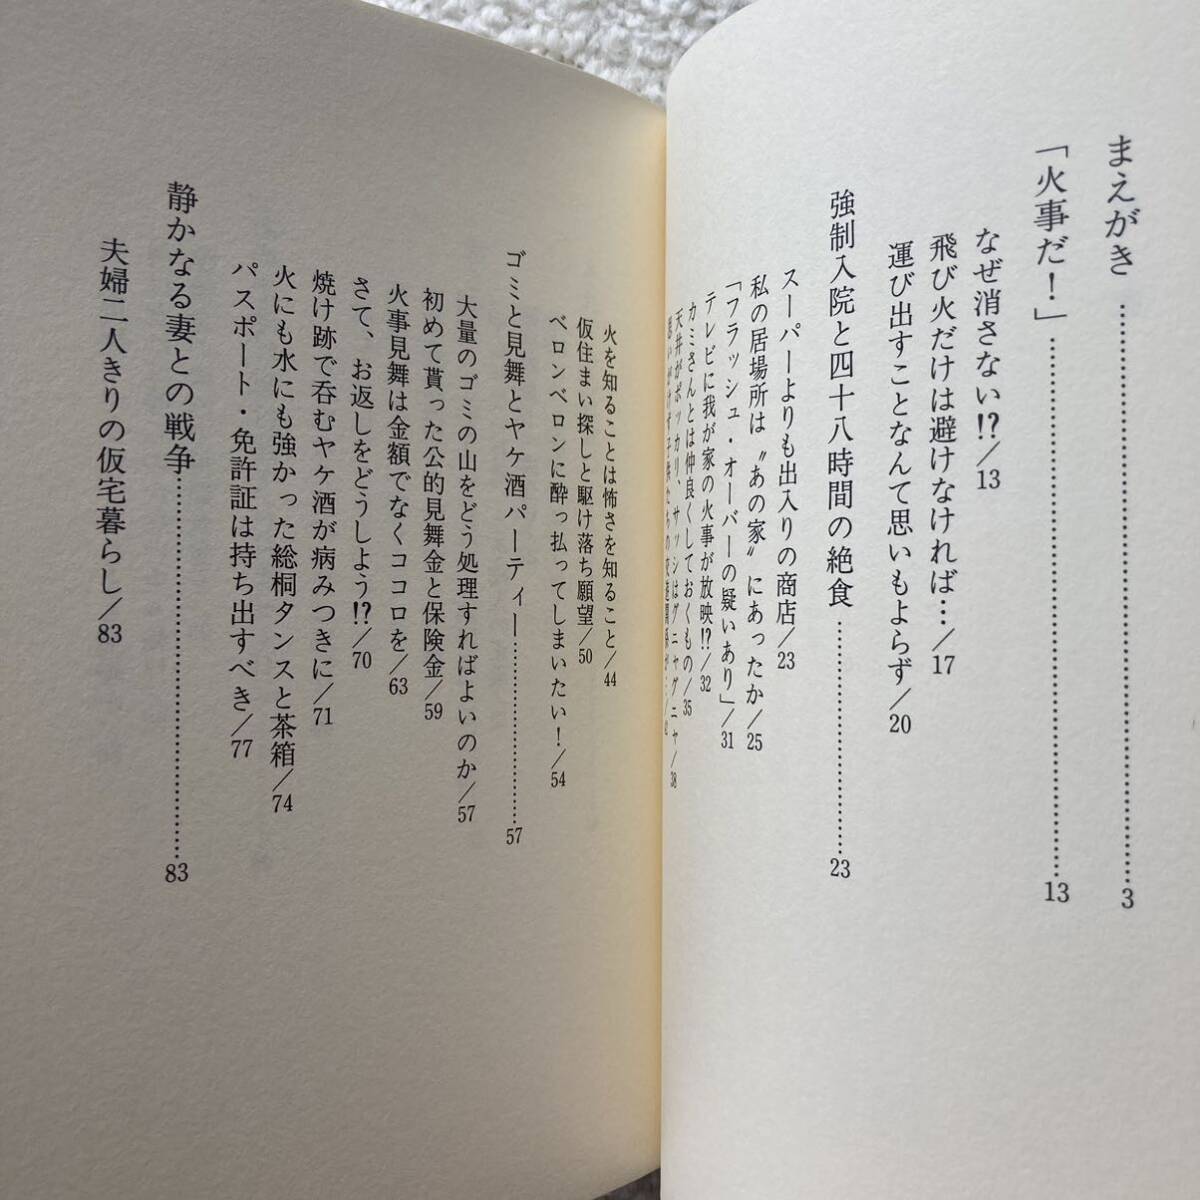 まえがき……………………3
「火事だ！」……………………13
なぜ消さない!?／13
飛び火だけは避けなければ…／17
運び出すことなんて思いもよらず／20
強制入院と四十八時間の絶食……………………23
スーパーよりも出入りの商店／23
私の居場所は〝あの家〟にあったか／25
「フラッシュ・オーバーの疑いあり」／31
テレビに我が家の火事が放映!?／32
カミさんとは仲良くしておくもの／35
天井がポッカリ、サッシはグニャグニャ／38
思いがけず子供たちの交遊関係が…／42
火を知ることは怖さを知ること／44
仮住まい探しと駆け落ち願望／50
ベロンベロンに酔っ払ってしまいたい！／54
ゴミと見舞とヤケ酒パーティー……………………57
大量のゴミの山をどう処理すればよいのか／57
初めて貰った公的見舞金と保険金／59
火事見舞は金額でなくココロを／63
さて、お返しをどうしよう!?／70
焼け跡で呑むヤケ酒が病みつきに／71
火にも水にも強かった総桐タンスと茶箱／74
パスポート・免許証は持ち出すべき／77
静かなる妻との戦争……………………83
夫婦二人きりの仮宅暮らし／83